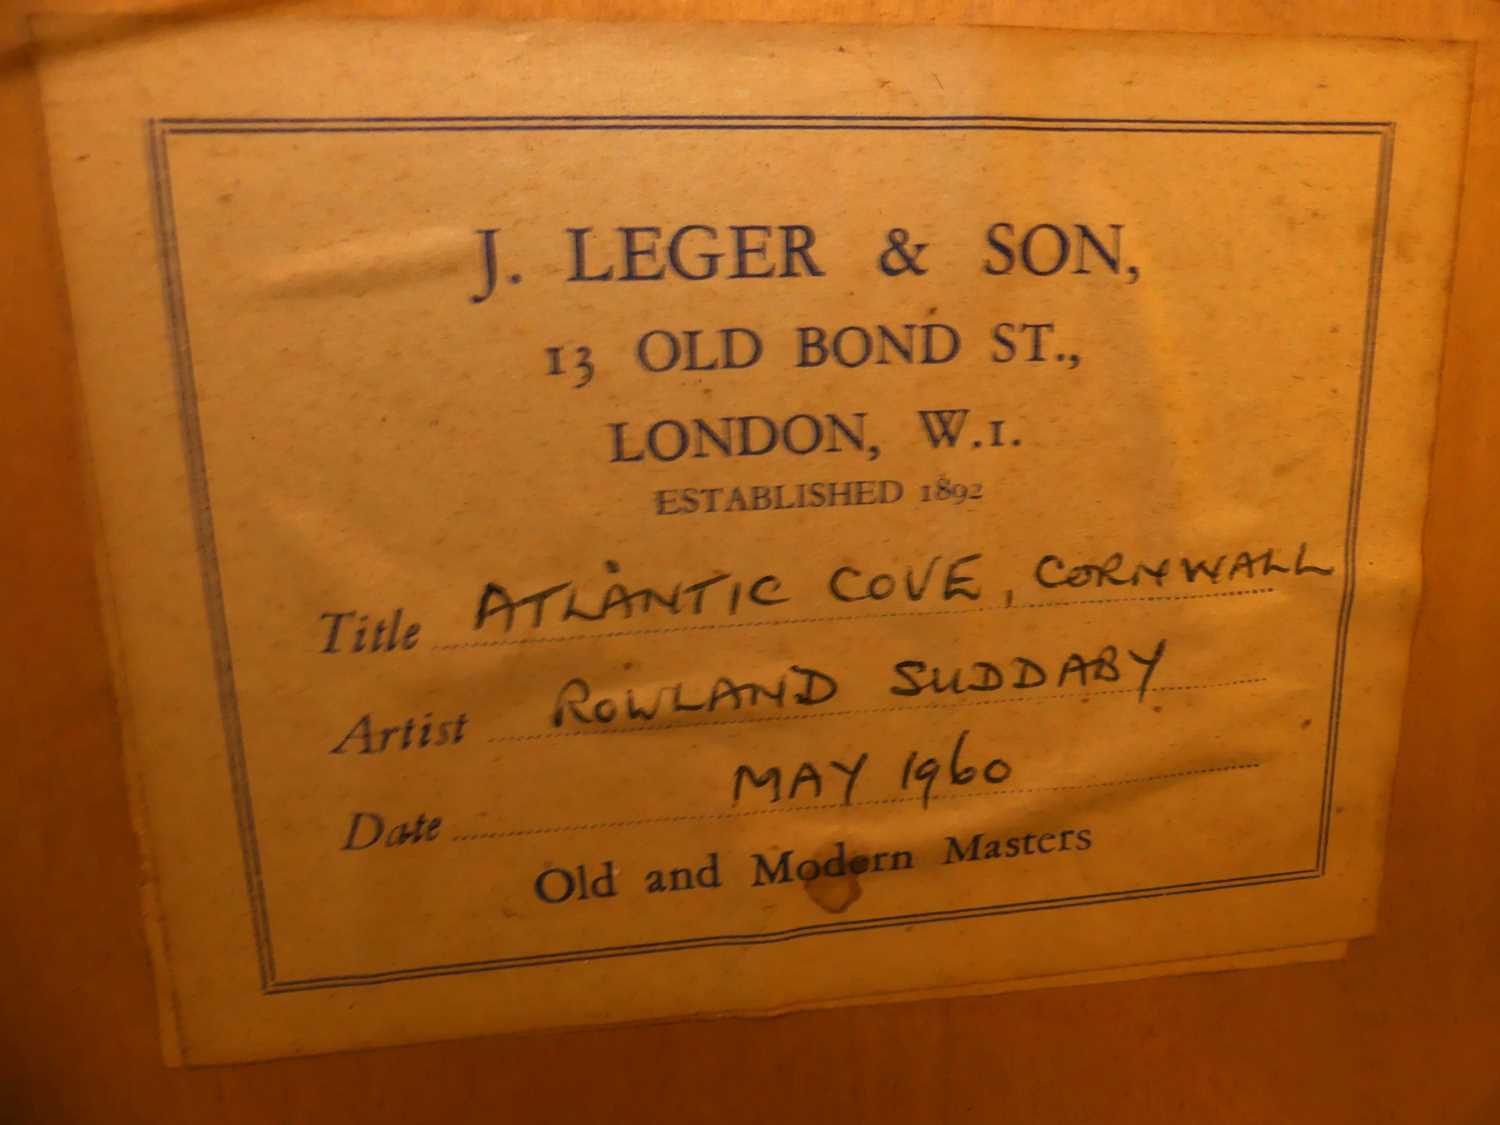 J. LEGER & SON,
13 OLD BOND ST.,
LONDON, W.1.
ESTABLISHED 1892
Title ATLANTIC COVE, CORNWALL
Artist ROWLAND SUDDABY
Date MAY 1960
Old and Modern Masters